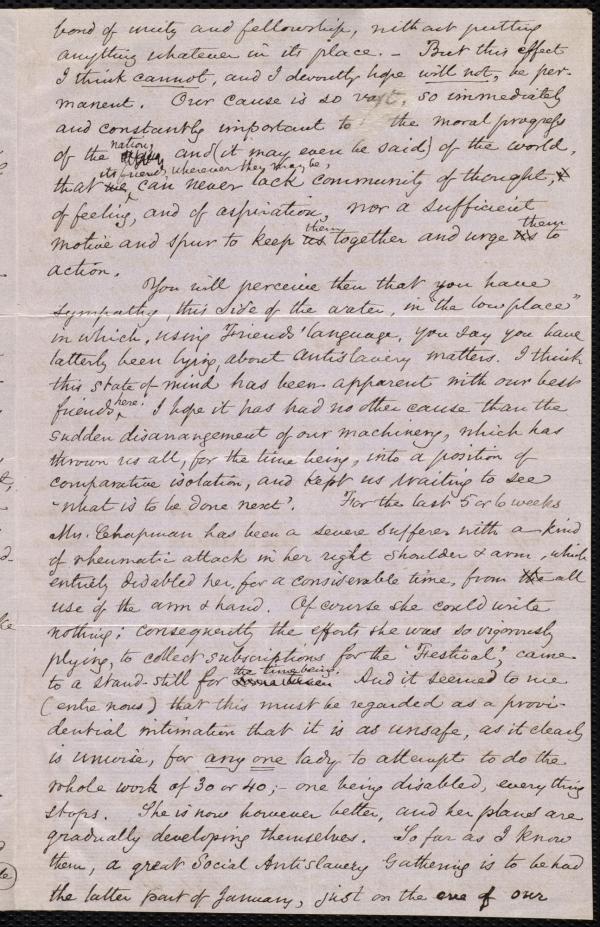 bond of unity and fellowship, without putting
anything whatever in its place. – But this effect
I think cannot, and I devoutly hope will not, be per-
manent. Our cause is so vast, so immediately
and constantly important to the moral progress
of the nation, and (it may even be said) of the world,
that its friends, wherever they may be, can never lack community of thought,
of feeling, and of aspiration, nor a sufficient
motive and spur to keep us them together and urge us them to
action.
You will perceive then that you have
sympathy, this side of the water, in "the low place"
in which, using Friends' language, you say you have
latterly been lying, about Antislavery matters. I think
this state of mind has been apparent with our best
friends here. I hope it has had no other cause than the
sudden disarrangement of our machinery, which has
thrown us all, for the time being, into a position of
comparative isolation, and kept us waiting to see
"what is to be done next'. For the last 5 or 6 weeks
Mrs. Chapman has been a severe sufferer with a kind
of rheumatic attack in her right shoulder & arm, which
entirely disabled her, for a considerable time, from the all
use of the arm & hand. Of course she could write
nothing; consequently the efforts she was so vigorously
plying, to collect subscriptions for the 'Festival', came
to a stand-still for the time being. And it seemed to me
(entre nous) that this must be regarded as a provi-
dential intimation that it is as unsafe, as it clearly
is unwise, for any one lady to attempt to do the
whole work of 30 or 40; – one being disabled, everything
stops. She is now however better, and her plans are
gradually developing themselves. So far as I know
them, a great Social Antislavery Gathering is to be had
the latter part of January, just on the eve of our